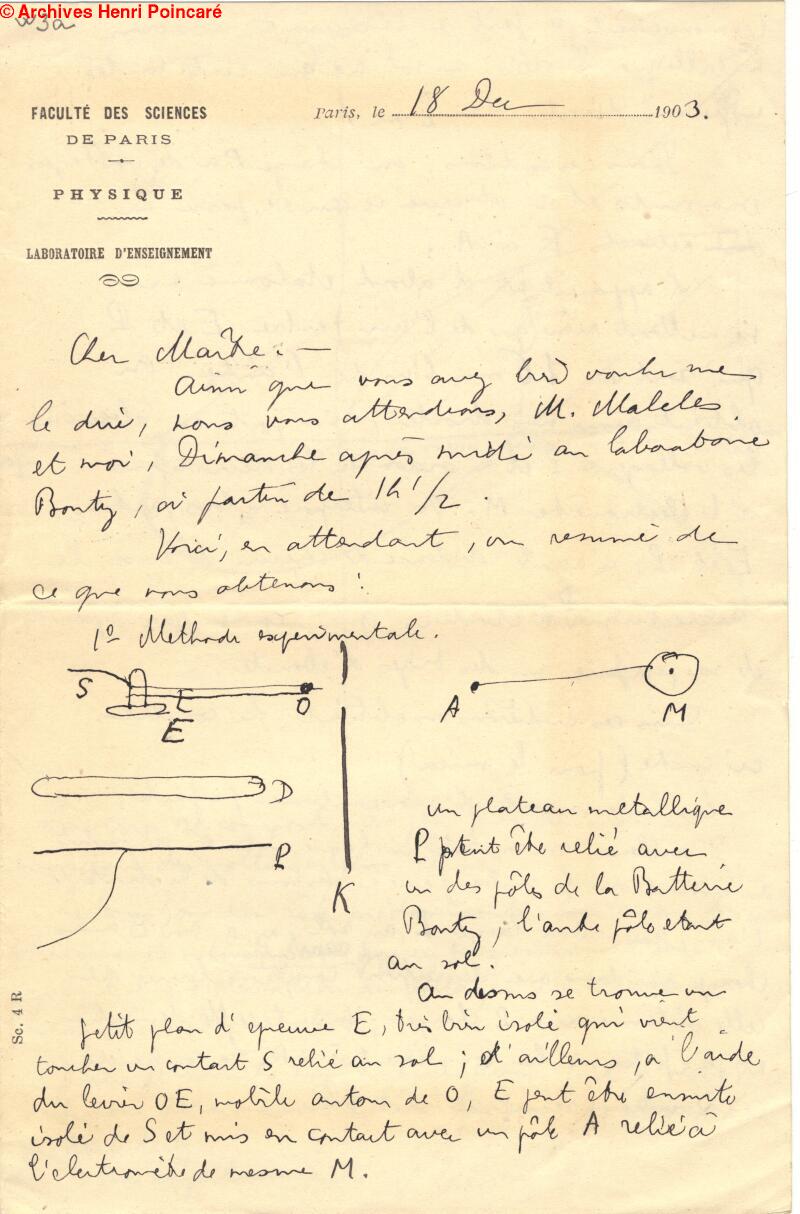 © Archives Henri Poincaré
FACULTÉ DES SCIENCES
DE PARIS
PHYSIQUE
LABORATOIRE D'ENSEIGNEMENT
Paris, le 18 Dec 1903.
Cher Maître :—
Ainsi que vous avez bien voulu me
le dire, nous vous attendrons, M. Malclès
et moi, Dimanche après midi au laboratoire
Bouty, à partir de 1h 1/2.
Voici, en attendant, un resumé de
ce que nous obtenons :
1º Methode experimentale.
S
E
E
O
A
M
D
P
K
un plateau metallique
P peut être relié avec
un des pôles de la Batterie
Bouty, l'autre pôle etant
au sol.
Au dessus se trouve un
petit plan d'epreuve E, très bien isolé qui vient
toucher un contact S relié au sol ; d'ailleurs, à l'aide
du levier OE, mobile autour de O, E peut être ensuite
isolé de S et mis en contact avec un pôle A relié à
l'electromètre de mesure M.
Sc. 4 R